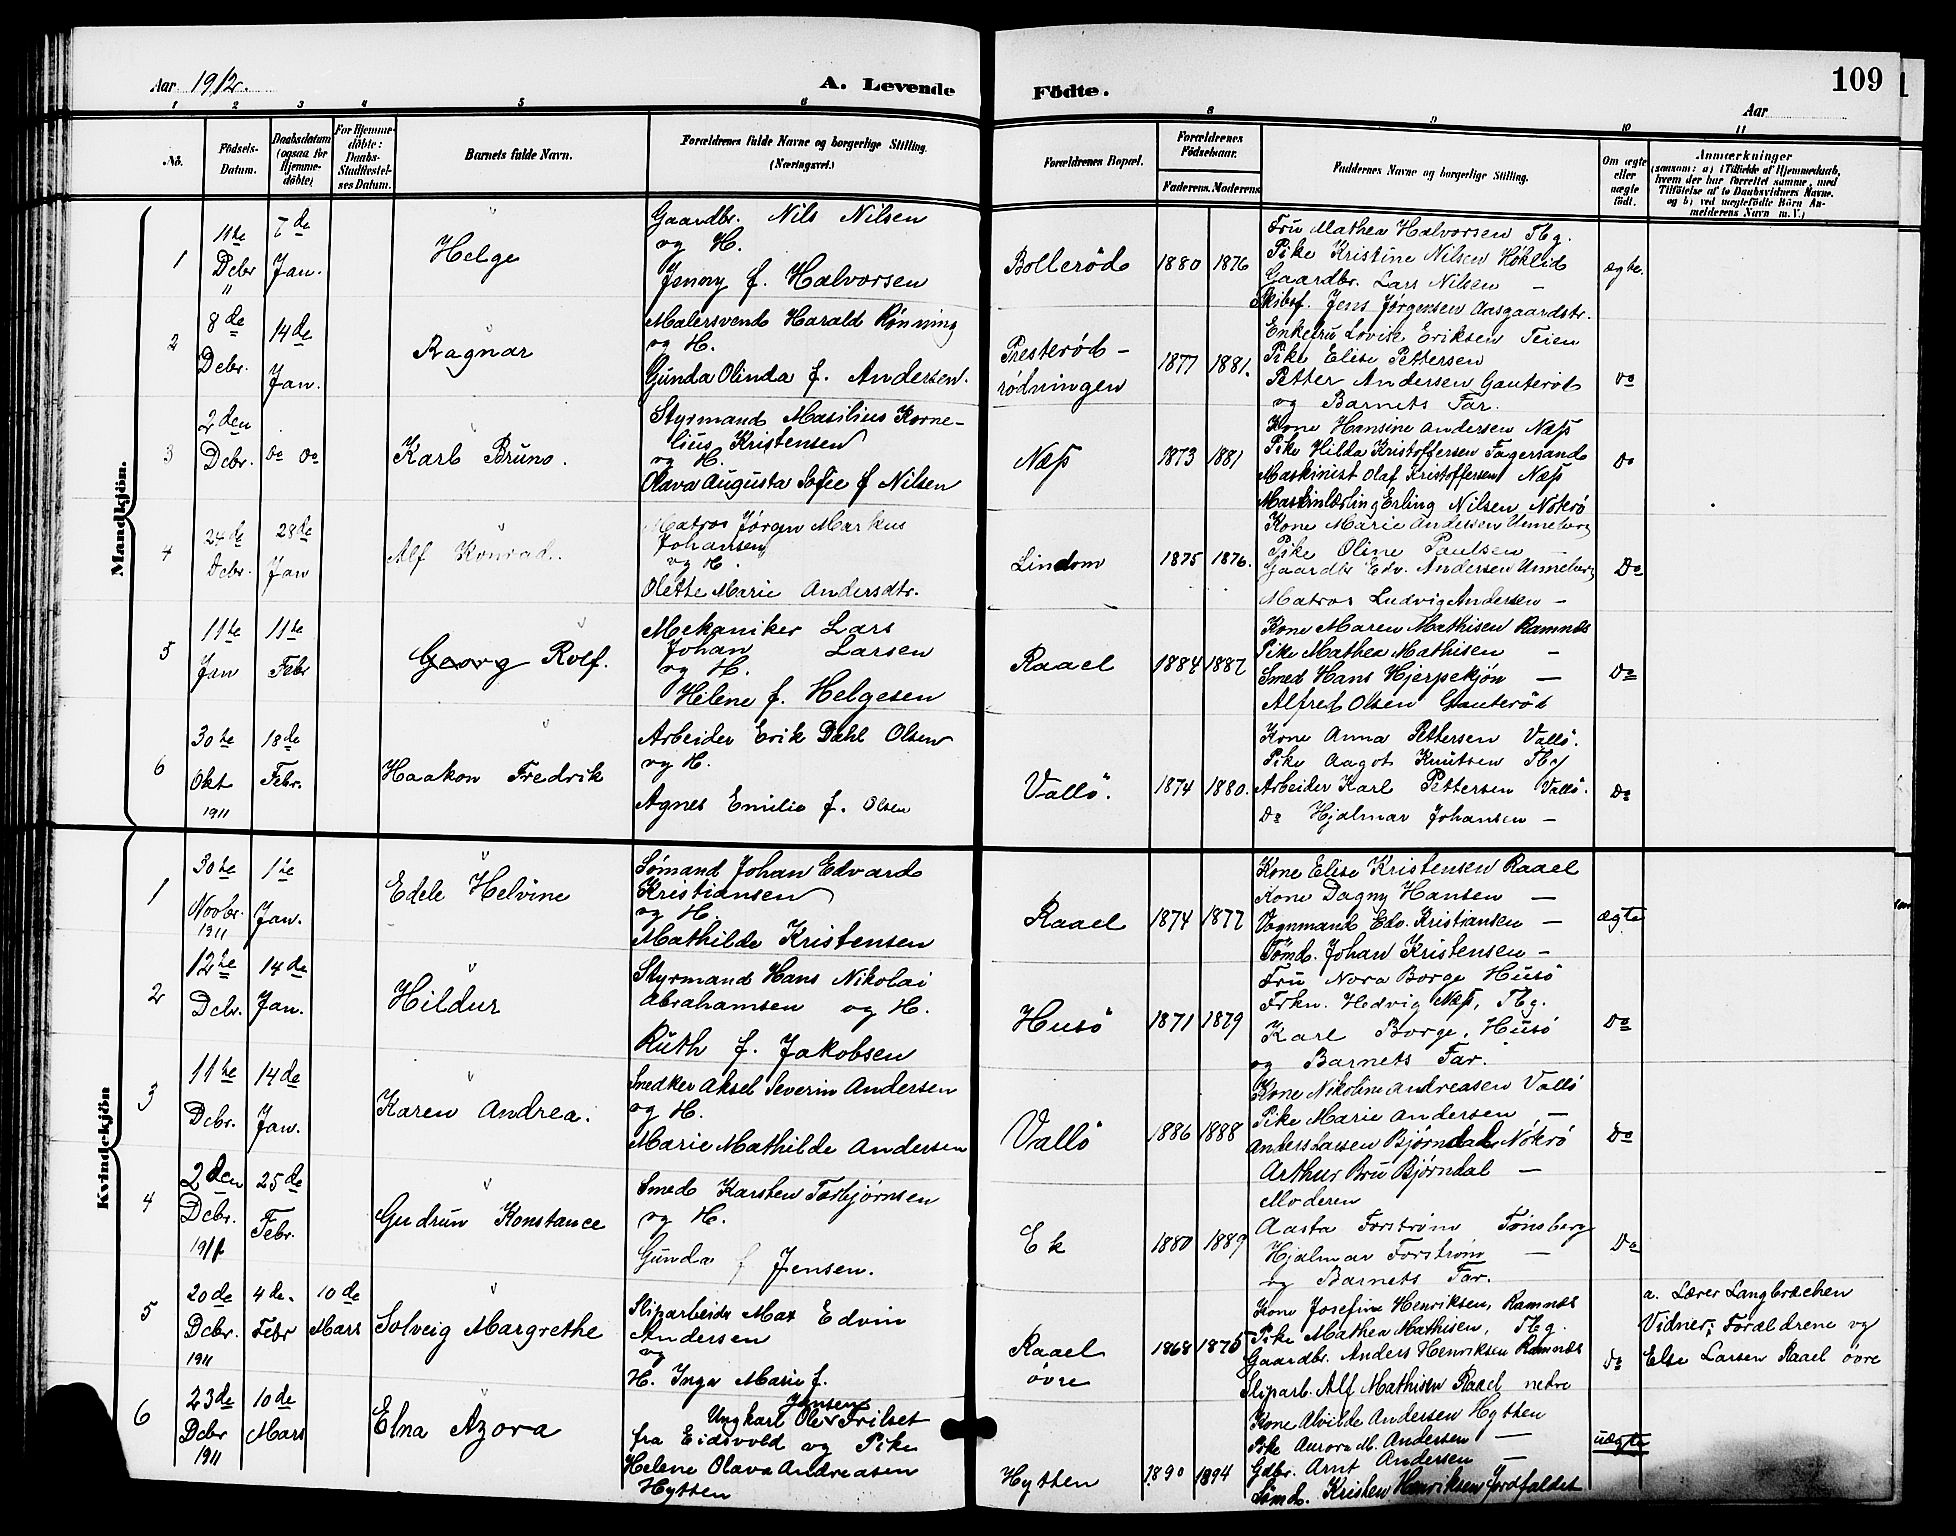 Aar 1912. A. Levende Födte. Aar 109
1 2 3 4 5 6 8 9 10 11
No. Födsels-Datum. Daabsdatum (ogsaa for Hjemmedöbte) For Hjemmedöbte: Daabs-Stadfæstelses Datum. Barnets fulde Navn. Forældrenes fulde Navne og borgerlige Stilling. (Næringsvei.) Forældrenes Bopæl. Forældrenes Födselsaar. Faderens. Moderens. Faddernes Navne og borgerlige Stilling. Om ægte eller uægte födt. Anmærkninger (saasom: a) i Tilfælde af Hjemmedaab, hvem der har forrettet samme, med Tilföielse af to Daabsvidners Navne. og b) ved uægtefödte Börn Anmelderens Navn m. V.)
Mandkjön.
1 11te Dcbr " 7de Jan. Helge
Gaardbr. Nils Nilsen
og H.
Jenny f. Halvorsen
Bollerød 1880 1876
Fru Mathea Halvorsen Tbg.
Pike Kristine Nilsen Høklid
Gaardbr. Lars Nilsen —
Skibsf. Jens Jørgensen Aasgaardstr.
ægte.
2 8de Dcbr. 14de Jan. Ragnar
Malersvend Harald Rønning
og H.
Gunda Olinda f. Andersen.
Presterød-
rødningen 1877 1881.
Enkefru Lovise Eriksen Teien
Pike Elise Pettersen
Petter Andersen Gauterød
og Barnets Far.
Do
3 2den Dcbr. Do Do Karl Bruno.
Styrmand Masilius Korne-
lius Kristensen
og H.
Olava Augusta Sofie f Nilsen
Næss 1873 1881
Kone Hansine Andersen Næss
Pike Hilda Kristoffersen Fagersand
Maskinist Olaf Kristoffersen Næss
Maskinlærling Erling Nilsen Nøkrø
Do
4 24de Dcbr. 28de Jan Alf Konrad.
Matros Jørgen Markus
Johansen
og H.
Olette Marie Andersdtr.
Lindom 1875 1876.
Kone Marie Andersen Unneberg
Pike Oline Paulsen —
Gaardbr Edv. Andersen Unneberg
Matros Ludvig Andersen —
Do
5 11te Jan 11te Febr Georg Rolf.
Mekaniker Lars
Johan Larsen
og H.
Helene f. Helgesen
Raael 1884 1887
Kone Maren Mathisen Ramnes
Pike Mathea Mathisen —
Smed Hans Hjerpekjøn —
Alfred Olsen Gauterød
Do
6 30te Okt 1911 18de Febr. Haakon Fredrik
Arbeider Erik Dahl Olsen
og H.
Agnes Emilie f. Olsen
Vallö. 1874 1880.
Kone Anna Pettersen Vallö.
Pike Aagot Knutsen Tbg
Arbeider Karl Pettersen Vallö.
Do Hjalmar Johansen —
Do
Kvindekjön
1 30te Novbr. 1911 1te Jan. Edele Helvine
Sømand Johan Edvard
Kristiansen
og H.
Mathilde Kristensen
Raael 1874 1877
Kone Elise Kristensen Raael
Kone Dagny Hansen —
Vognmand Edv. Kristiansen —
Tømd. Johan Kristensen —
ægte
2 12te Dcbr. 14de Jan. Hildur
Styrmand Hans Nikolai
Abrahamsen og H.
Ruth f. Jakobsen
Husö 1871 1879
Fru Nora Borge Husö
Frkn. Hedvig Næss, Tbg.
Karl Borge, Husö
og Barnets Far.
Do
3 11te Dcbr. 14de Jan. Karen Andrea.
Smedker Aksel Severin Andersen
og H.
Marie Mathilde Andersen
Vallö 1886 1888
Kone Nikoline Andreasen Vallö
Pike Marie Andersen —
Anders Larsen Bjørndal Nökrö
Arthur Bru Bjørndal —
Moderen
Do
4 2den Dcbr. 1911 25de Febr. Gudrun Konstance
Smed Karsten Torbjørnsen
og H.
Gunda f Jensen.
Ek 1880 1889
Aasta Forstrøm Tønsberg
Hjalmar Forstrøm —
og Barnets Far.
Do
5 20de Dcbr. 1911 4de. Febr 10de Mars Solveig Margrethe
Sliparbeider Max Edvin
Andersen
og
H. Inga Marie f.
Jensen
Raael
øvre 1868 1875
Kone Josefine Henriksen, Ramnes
Pike Mathea Mathisen, Tbg.
Gaardbr. Anders Henriksen Ramnæs
Sliparb. Alf Mathisen Raael nedre
do
a. Lærer Langbrækken
Vidner; Forældrene og
Else Larsen Raael øvre
6 23de Dcbr 1911 10de Mars Elna Azora
Ungkarl Ole Frilset
fra Eidsvold og Pike
Helene Olava Andreasen
Hytten
Hytten 1890 1894
Kone Alvilde Andersen Hytten
Pike Aurora M. Andersen —
Gdbr. Arnt Andersen —
Sømd. Kristen Henriksen Jordfaldet
uægte